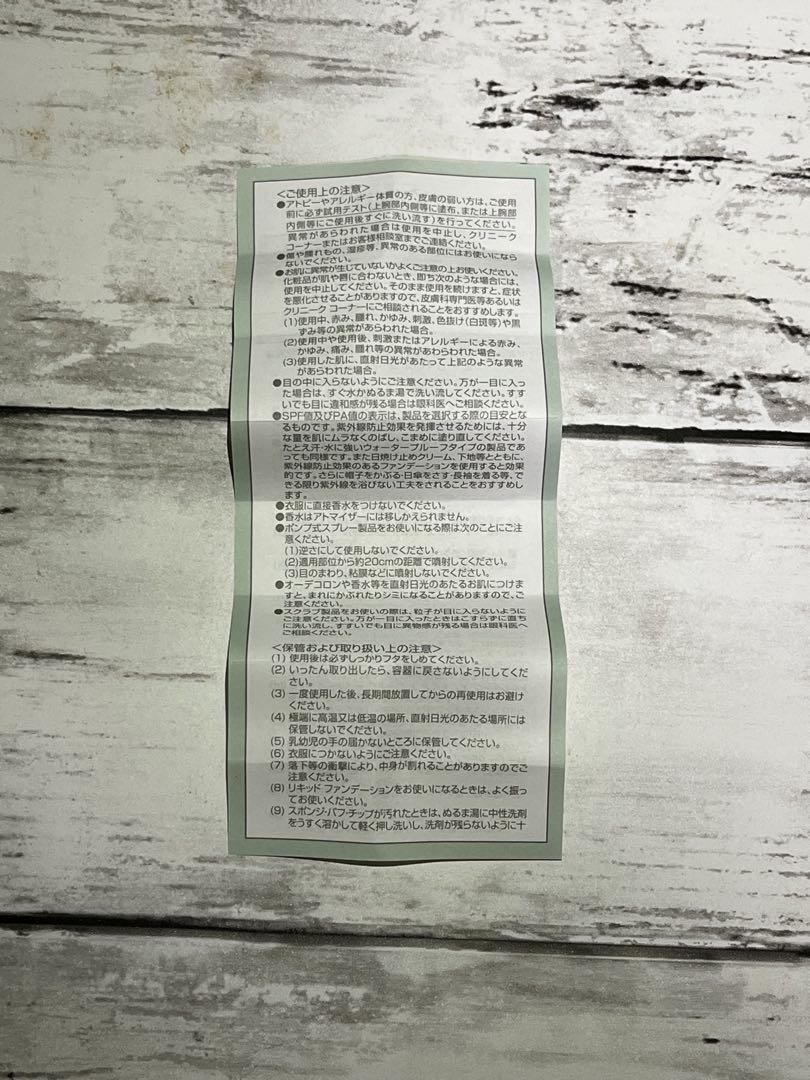 <ご使用上の注意>
●アトピーやアレルギー体質の方、皮膚の弱い方は、ご使用
前に必ず試用テスト(上腕部内側等に塗布、または上腕部
内側等にご使用後すぐに洗い流す)を行ってください。
異常があらわれた場合は使用を中止し、クリニーク
コーナーまたはお客様相談室までご連絡ください。
●傷や腫れもの、湿疹等、異常のある部位にはお使いになら
ないでください。
●お肌に異常が生じていないかよくご注意の上お使いください。
化粧品が肌や唇に合わないとき、即ち次のような場合には、
使用を中止してください。そのまま使用を続けますと、症状
を悪化させることがありますので、皮膚科専門医等あるいは
クリニーク コーナーにご相談されることをおすすめします。
(1)使用中、赤み、腫れ、かゆみ、刺激、色抜け(白斑等)や黒
ずみ等の異常があらわれた場合。
(2)使用中や使用後、刺激またはアレルギーによる赤み、
かゆみ、痛み、腫れ等の異常があわらわれた場合。
(3)使用した肌に、直射日光があたって上記のような異常
があらわれた場合。
●目の中に入らないようにご注意ください。万が一目に入っ
た場合は、すぐ水かぬるま湯で洗い流してください。すす
いでも目に違和感が残る場合は眼科医へご相談ください。
●SPF値及びPA値の表示は、製品を選択する際の目安とな
るものです。紫外線防止効果を発揮させるためには、十分
な量を肌にムラなくのばし、こまめに塗り直してください。
たとえ汗・水に強いウォータープルーフタイプの製品であ
っても同様です。また日焼け止めクリーム、下地等とともに、
紫外線防止効果のあるファンデーションを使用すると効果
的です。さらに帽子をかぶる・日傘をさす・長袖を着る等、で
きる限り紫外線を浴びない工夫をされることをおすすめし
ます。
●衣服に直接香水をつけないでください。
●香水はアトマイザーには移しかえられません。
●ポンプ式スプレー製品をお使いになる際は次のことにご注
意ください。
(1)逆さにして使用しないでください。
(2)適用部位から約20cmの距離で噴射してください。
(3)目のまわり、粘膜などに噴射しないでください。
●オーデコロンや香水等を直射日光のあたるお肌につけま
すと、まれにかぶれたりシミになることがありますので、ご
注意ください。
●スクラブ製品をお使いの際は、粒子が目に入らないように
ご注意ください。万が一目に入ったときはこすらずに直ち
に洗い流し、すすいでも目に異物感が残る場合は眼科医へ
ご相談ください。
<保管および取り扱い上の注意>
(1) 使用後は必ずしっかりフタをしめてください。
(2) いったん取り出したら、容器に戻さないようにしてくだ
さい。
(3) 一度使用した後、長期間放置してからの再使用はお避け
ください。
(4) 極端に高温又は低温の場所、直射日光のあたる場所には
保管しないでください。
(5) 乳幼児の手の届かないところに保管してください。
(6) 衣服につかないようにご注意ください。
(7) 落下等の衝撃により、中身が割れることがありますのでご
注意ください。
(8) リキッド ファンデーションをお使いになるときは、よく振っ
てお使いください。
(9) スポンジ・パフ・チップが汚れたときは、ぬるま湯に中性洗剤
をうすく溶かして軽く押し洗いし、洗剤が残らないように十